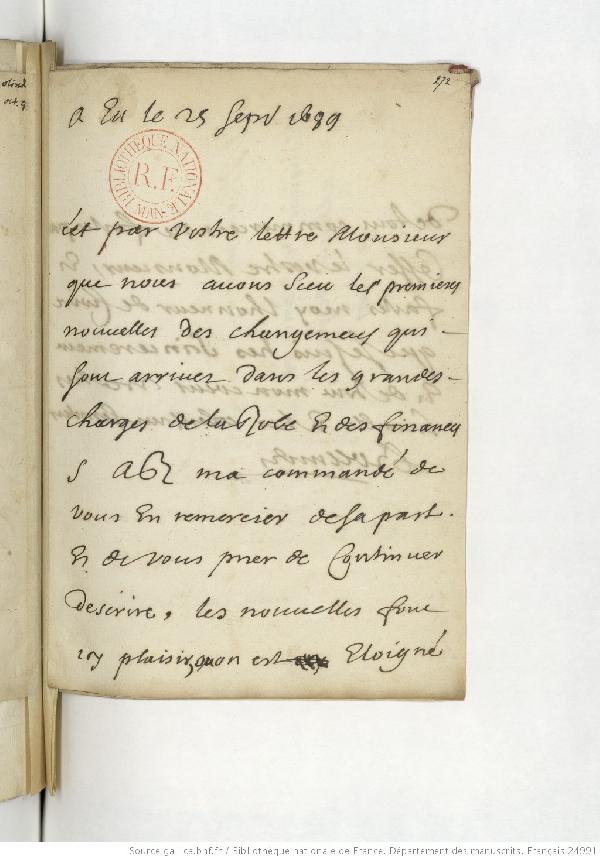 272
A Eu le 25 Sept 1689
BIBLIOTHEQUE NATIONALE
R.F.
MAN
cet par vostre lettre Monsieur
que nous auons sceu les premieres
nouuelles des changemens qui
sont arriuez dans les grandes
charges de la Robe Et des finances
S A R ma commandé de
vous En remercier de sa part.
Et de vous prier de Continuer
descrire, les nouuelles font
icy plaisir, quon est Eloigné
Source gallica.bnf.fr / Bibliothèque nationale de France. Département des manuscrits. Français 24991